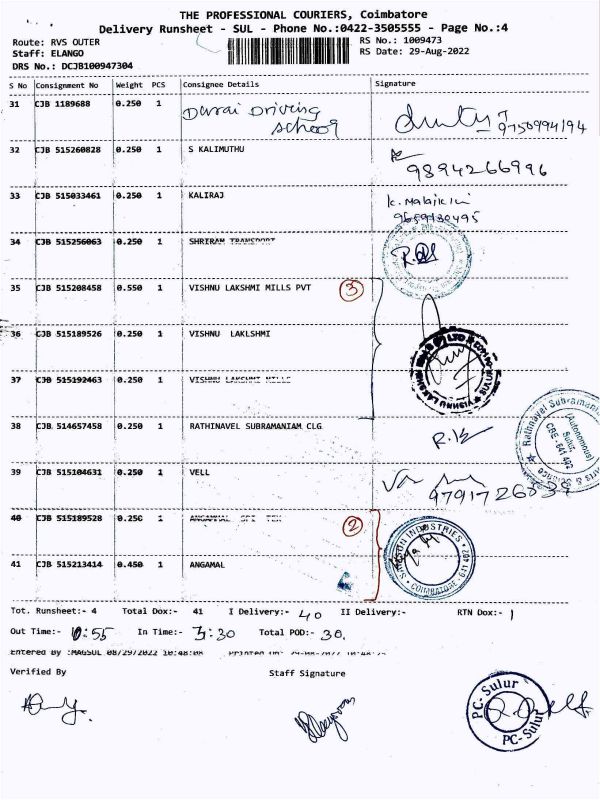 THE PROFESSIONAL COURIERS, Coimbatore
Delivery Runsheet - SUL - Phone No.:0422-3505555 - Page No.:4
Route: RVS OUTER RS No.: 1009473
Staff: ELANGO RS Date: 29-Aug-2022
DRS No.: DCJB100947304
S No Consignment No Weight PCS Consignee Details Signature
31 CJB 1189688 0.250 1 Durai Driving school 9750994194
32 CJB 515260828 0.250 1 S KALIMUTHU 9894266996
33 CJB 515033461 0.250 1 KALIRAJ
34 CJB 515256063 0.250 1 SHRIRAM TRANSPORT
35 CJB 515208458 0.550 1 VISHNU LAKSHMI MILLS PVT 3
36 CJB 515189526 0.250 1 VISHNU LAKLSHMI
37 CJB 515192463 0.250 1 VISHNU LAKSHMI MILLS
38 CJB 514657458 0.250 1 RATHINAVEL SUBRAMANIAM CLG
Rathnavel Subramaniam
(Autonomous)
Sulur
CBE - 641 402
39 CJB 515104631 0.250 1 VELL
40 CJB 515189528 0.250 1 ANGAMMAL SPI TEX 2
41 CJB 515213414 0.450 1 ANGAMAL
INDUSTRIES
COIMBATORE - 641 402
Tot. Runsheet:- 4 Total Dox:- 41 I Delivery:- 40 II Delivery:- RTN Dox:- 1
Out Time:- 10:55 In Time:- 3:30 Total POD:- 30.
Entered By :MAGSUL 08/29/2022 10:48:08 Printed On:
Verified By Staff Signature
PC-Sulur
PC-Sulur